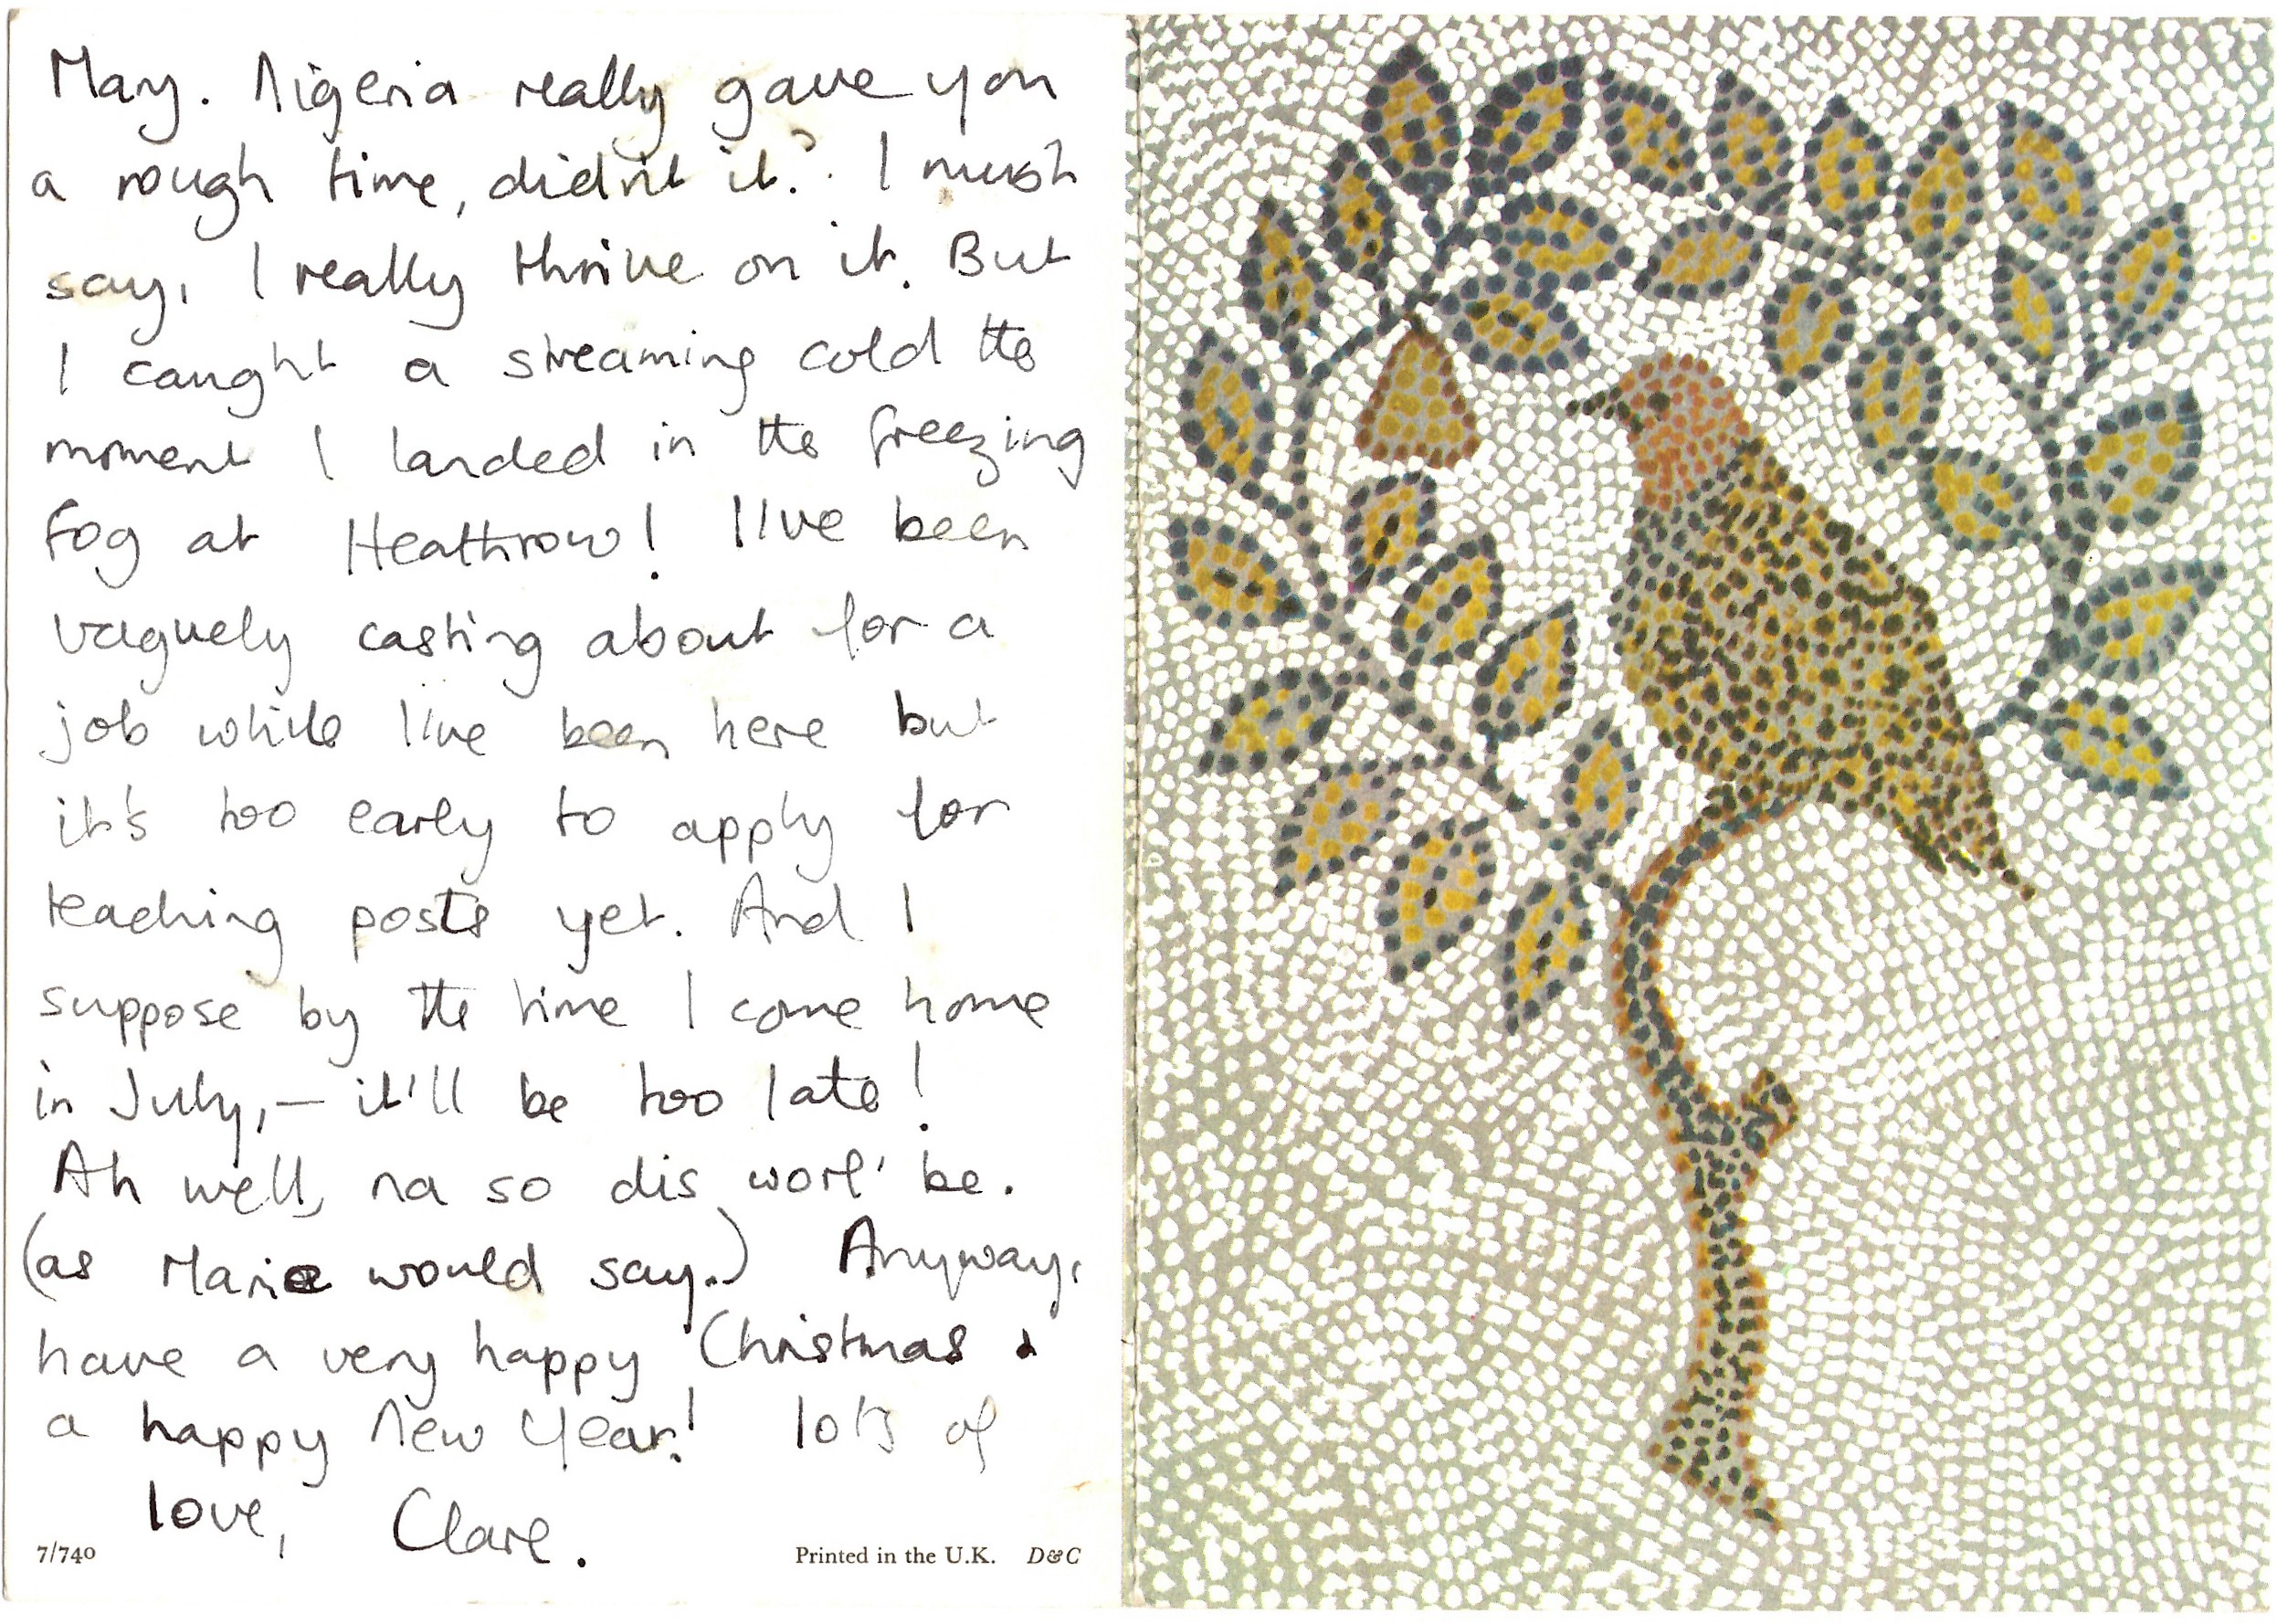 May. Nigeria really gave you
a rough time, didn't it? I must
say, I really thrive on it. But
I caught a streaming cold the
moment I landed in the freezing
fog at Heathrow! I've been
vaguely casting about for a
job while I've been here but
it's too early to apply for
teaching posts yet. And I
suppose by the time I come home
in July, — it'll be too late!
Ah well, na so dis worl' be.
(as Marie would say.) Anyway,
have a very happy Christmas &
a happy New Year! lots of
love, Clare.
7/740 Printed in the U.K. D&C